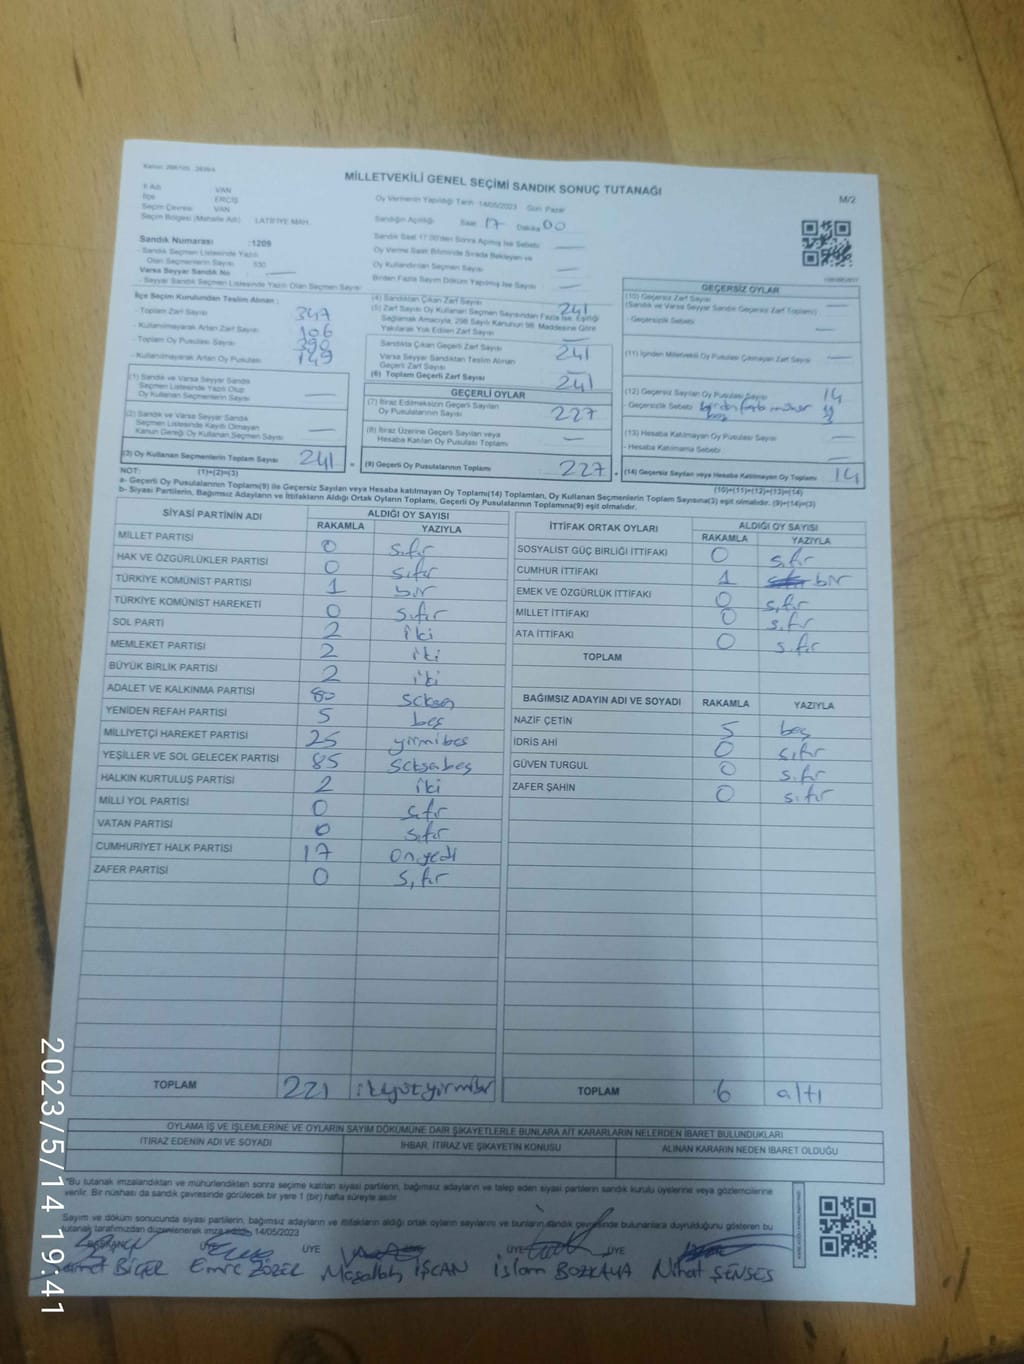 MİLLETVEKİLİ GENEL SEÇİMİ SANDIK SONUÇ TUTANAĞI
M/2
İl Adı VAN
İlçe ERCİŞ
Seçim Çevresi VAN
Seçim Bölgesi (Mahalle Adı) LATİFİYE MAH.
Oy Vermenin Yapıldığı Tarih 14/05/2023 Gün: Pazar
Sandığın Açılışı Saat 17 Dakika 00
Sandık Saat 17.00'den Sonra Açılmış İse Sebebi
Oy Verme Saat Bitiminde Sırada Bekleyen ve
Oy Kullandırılan Seçmen Sayısı
Birden Fazla Sayım Döküm Yapılmış İse Sayısı
Sandık Numarası :1209
- Sandık Seçmen Listesinde Yazılı
Olan Seçmenlerin Sayısı 330
Varsa Seyyar Sandık No
- Seyyar Sandık Seçmen Listesinde Yazılı Olan Seçmen Sayısı
İlçe Seçim Kurulundan Teslim Alınan ;
- Toplam Zarf Sayısı 347
- Kullanılmayarak Artan Zarf Sayısı 106
- Toplam Oy Pusulası 390
- Kullanılmayarak Artan Oy Pusulası 149
(1) Sandık ve Varsa Seyyar Sandık
Seçmen Listesinde Yazılı Olup
Oy Kullanan Seçmenlerin Sayısı
(2) Sandık ve Varsa Seyyar Sandık
Seçmen Listesinde Kayıtlı Olmayan
Kanun Gereği Oy Kullanan Seçmen Sayısı
(3) Oy Kullanan Seçmenlerin Toplam Sayısı 241
(4) Sandıktan Çıkan Zarf Sayısı 241
(5) Zarf Sayısı Oy Kullanan Seçmen Sayısından Fazla İse, Eşitliği
Sağlamak Amacıyla, 298 Sayılı Kanunun 98. Maddesine Göre
Yakılarak Yok Edilen Zarf Sayısı
Sandıkta Çıkan Geçerli Zarf Sayısı 241
Varsa Seyyar Sandıktan Teslim Alınan
Geçerli Zarf Sayısı
(6) Toplam Geçerli Zarf Sayısı 241
GEÇERLİ OYLAR
(7) İtiraz Edilmeksizin Geçerli Sayılan
Oy Pusulalarının Sayısı 227
(8) İtiraz Üzerine Geçerli Sayılan veya
Hesaba Katılan Oy Pusulası Toplamı
(9) Geçerli Oy Pusulalarının Toplamı 227
GEÇERSİZ OYLAR
(10) Geçersiz Zarf Sayısı
(Sandık ve Varsa Seyyar Sandık Geçersiz Zarf Toplamı)
- Geçersizlik Sebebi
(11) İçinden Milletvekili Oy Pusulası Çıkmayan Zarf Sayısı
(12) Geçersiz Sayılan Oy Pusulası Sayısı 14
- Geçersizlik Sebebi birden fazla mühür 11
boş 3
(13) Hesaba Katılmayan Oy Pusulası Sayısı
- Hesaba Katılmama Sebebi
(14) Geçersiz Sayılan veya Hesaba Katılmayan Oy Toplamı 14
NOT: (1)+(2)=(3)
(10)+(11)+(12)+(13)=(14)
a- Geçerli Oy Pusulalarının Toplamı(9) ile Geçersiz Sayılan veya Hesaba katılmayan Oy Toplamı(14) Toplamları, Oy Kullanan Seçmenlerin Toplam Sayısına(3) eşit olmalıdır. (9)+(14)=(3)
b- Siyasi Partilerin, Bağımsız Adayların ve İttifakların Aldığı Ortak Oyların Toplamı, Geçerli Oy Pusulalarının Toplamına(9) eşit olmalıdır.
SİYASİ PARTİNİN ADI ALDIĞI OY SAYISI
RAKAMLA YAZIYLA
MİLLET PARTİSİ 0 sıfır
HAK VE ÖZGÜRLÜKLER PARTİSİ 0 sıfır
TÜRKİYE KOMÜNİST PARTİSİ 1 bir
TÜRKİYE KOMÜNİST HAREKETİ 0 sıfır
SOL PARTİ 2 iki
MEMLEKET PARTİSİ 2 iki
BÜYÜK BİRLİK PARTİSİ 2 iki
ADALET VE KALKINMA PARTİSİ 80 seksen
YENİDEN REFAH PARTİSİ 5 beş
MİLLİYETÇİ HAREKET PARTİSİ 25 yirmibeş
YEŞİLLER VE SOL GELECEK PARTİSİ 85 seksenbeş
HALKIN KURTULUŞ PARTİSİ 2 iki
MİLLİ YOL PARTİSİ 0 sıfır
VATAN PARTİSİ 0 sıfır
CUMHURİYET HALK PARTİSİ 17 onyedi
ZAFER PARTİSİ 0 sıfır
TOPLAM 221 ikiyüzyirmibir
İTTİFAK ORTAK OYLARI ALDIĞI OY SAYISI
RAKAMLA YAZIYLA
SOSYALİST GÜÇ BİRLİĞİ İTTİFAKI 0 sıfır
CUMHUR İTTİFAKI 1 bir
EMEK VE ÖZGÜRLÜK İTTİFAKI 0 sıfır
MİLLET İTTİFAKI 0 sıfır
ATA İTTİFAKI 0 sıfır
TOPLAM
BAĞIMSIZ ADAYIN ADI VE SOYADI RAKAMLA YAZIYLA
NAZİF ÇETİN 5 beş
İDRİS AHİ 0 sıfır
GÜVEN TURGUL 0 sıfır
ZAFER ŞAHİN 0 sıfır
TOPLAM 6 altı
OYLAMA İŞ VE İŞLEMLERİNE VE OYLARIN SAYIM DÖKÜMÜNE DAİR ŞİKAYETLERLE BUNLARA AİT KARARLARIN NELERDEN İBARET BULUNDUKLARI
İTİRAZ EDENİN ADI VE SOYADI İHBAR, İTİRAZ VE ŞİKAYETİN KONUSU ALINAN KARARIN NEDEN İBARET OLDUĞU
*Bu tutanak imzalandıktan ve mühürlendikten sonra seçime katılan siyasi partilerin, bağımsız adayların ve talep eden siyasi partilerin sandık kurulu üyelerine veya gözlemcilerine
verilir. Bir nüshası da sandık çevresinde görülecek bir yere 1 (bir) hafta süreyle asılır.
Sayım ve döküm sonucunda siyasi partilerin, bağımsız adayların ve ittifakların aldığı ortak oyların sayılarını ve bunların sandık çevresinde bulunanlara duyrulduğunu gösteren bu
tutanak tarafımızdan düzenlenerek imza edildi. 14/05/2023
BAŞKAN ÜYE ÜYE ÜYE ÜYE
BİÇER Emre ÖZEL Maşallah İŞCAN İslam BOZKAYA Nihat ŞENSES
2023/5/14 19:41